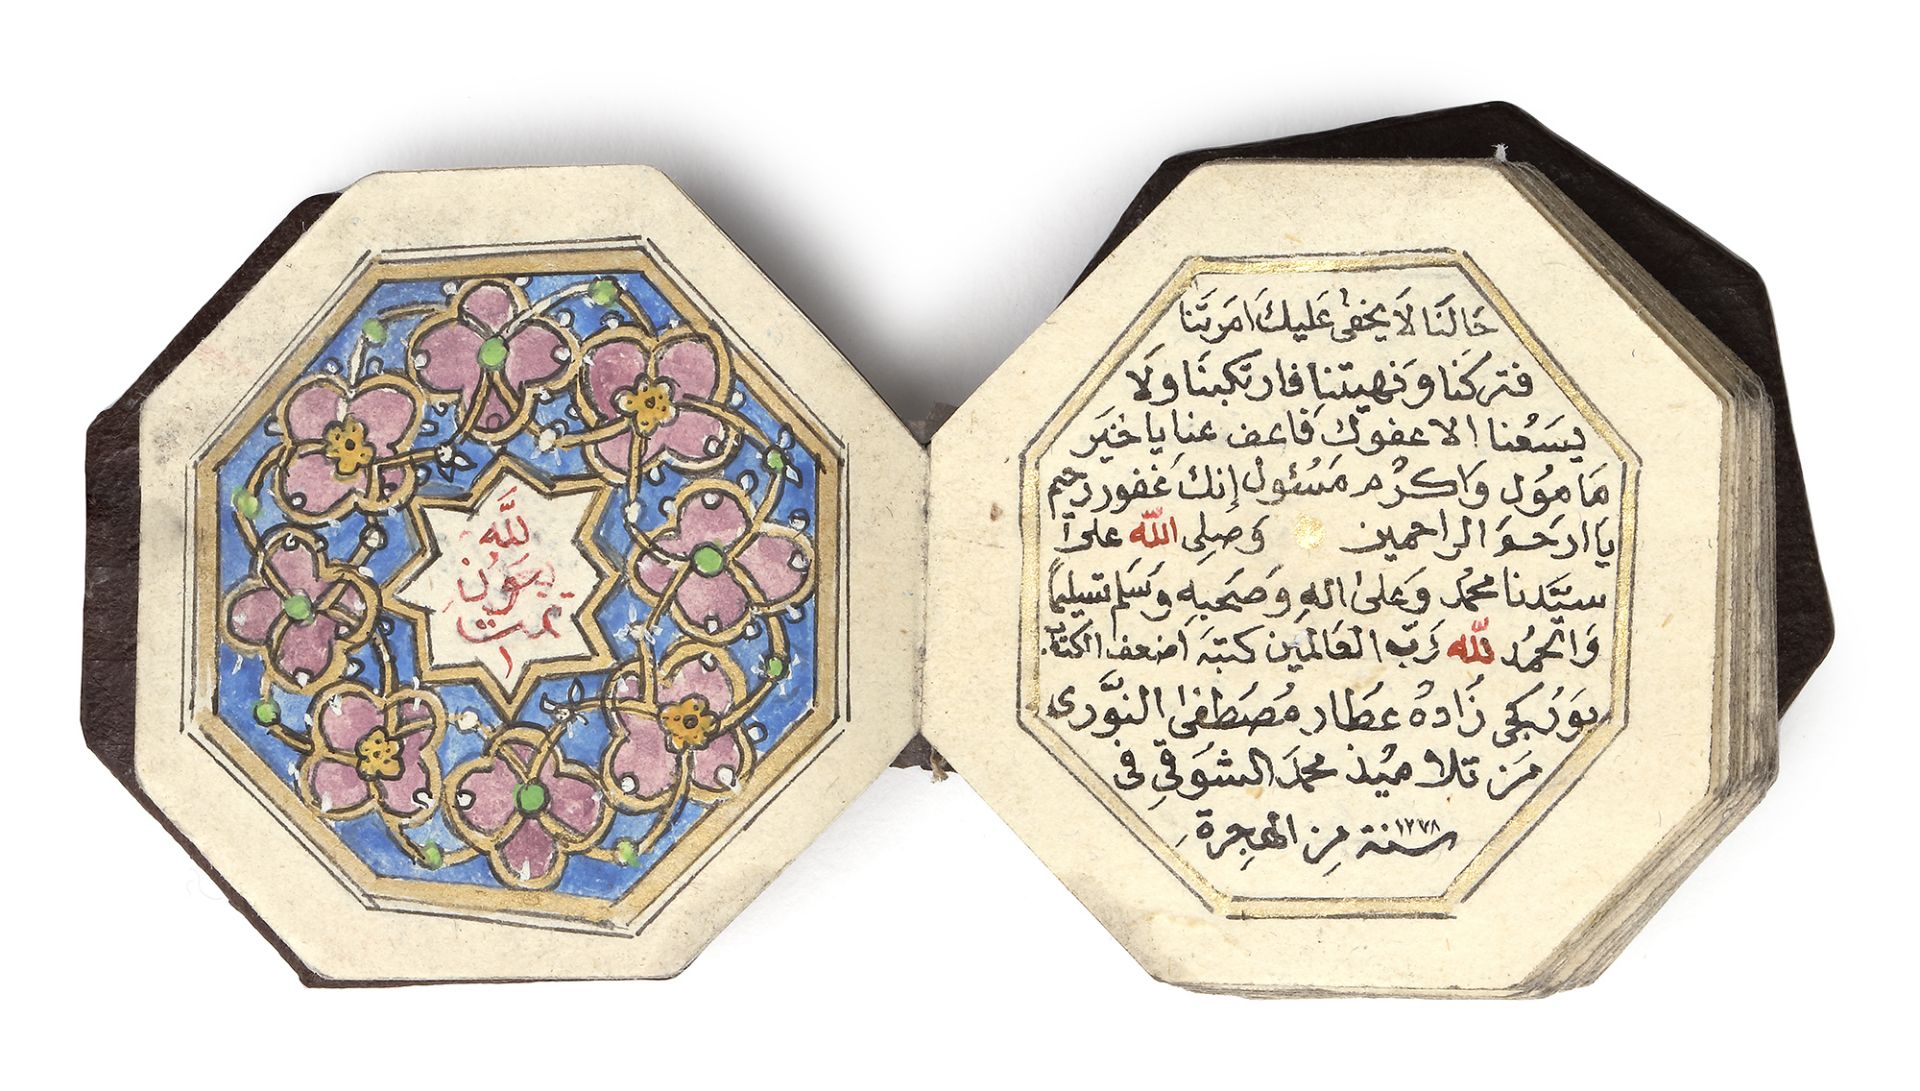 حَالَنَا لَا يَخفىٰ عَلَيكَ اَمَرتَنَا
فتركنَا وَنهيتَنا فارتكبنَا وَلَا
يَسَعُنا الا عفوك فاعف عنا يا خَيَر
مَامُول وَاكرُم مَسئول إنك غَفور رَحيم
يا ارحَمَ الراحمين وَصلى اللّٰه على
سَيّدنا محمّد وَعلىٰ اله وَصَحبِه وَسَلم تَسليماً
وَالحَمُد للّٰه رَبّ العَالمين كتبَه اَضعف الكتاب
زَادهُ عطار مُصَطفىٰ النوَّرى
مِن تلاميُذ محمَد الشَوقِي فى
سَنة ١٢٧٨ مِن الهِجرة
للّٰه
تمت